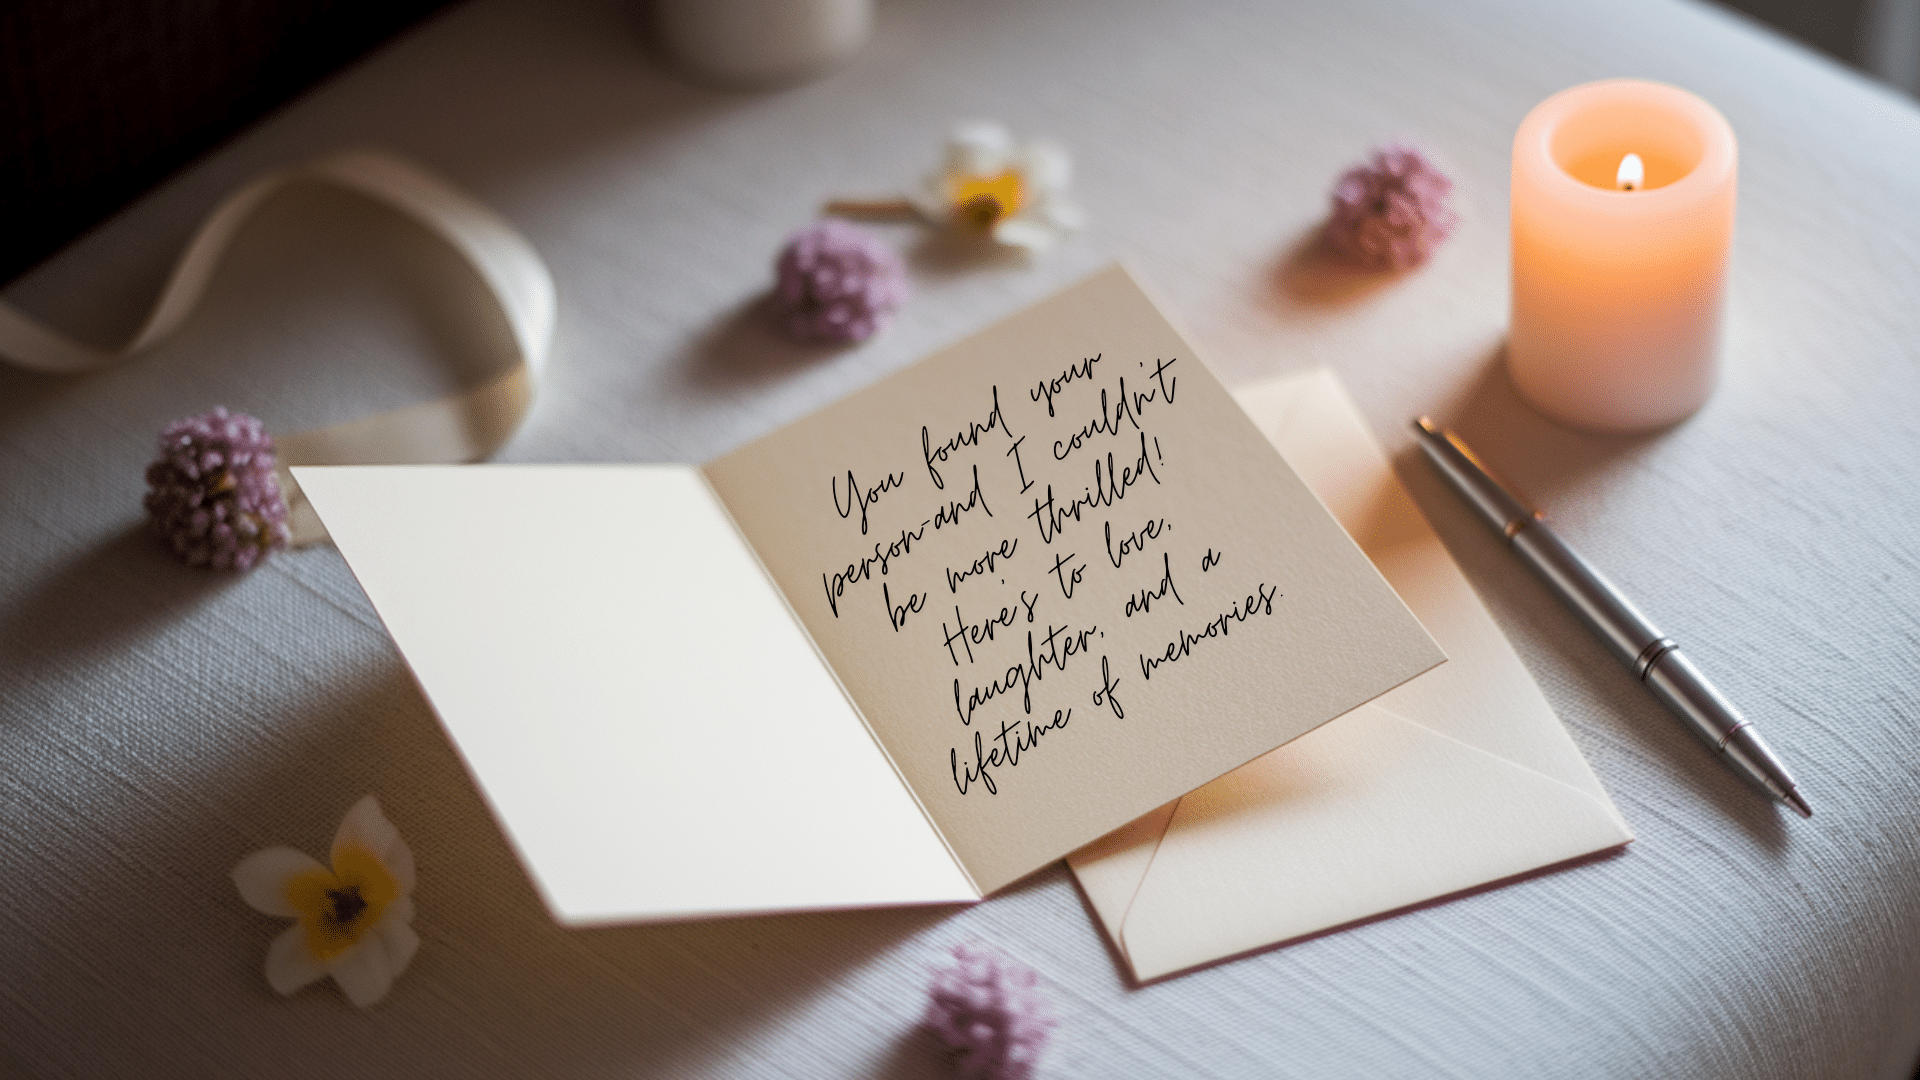 You found your
person-and I couldn't
be more thrilled!
Here's to love,
laughter, and a
lifetime of memories.